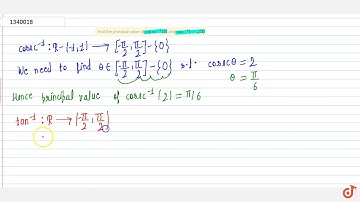 1340018
Find the principal value
cosec⁻¹ : R - (-1,1) ⟶ [-π/2, π/2] - {0}
We need to find θ ∈ [-π/2, π/2] - {0} s.t. cosec θ = 2
θ = π/6
Hence principal value of cosec⁻¹ (2) = π/6
tan⁻¹ : R ⟶ (-π/2, π/2)
doubtnut